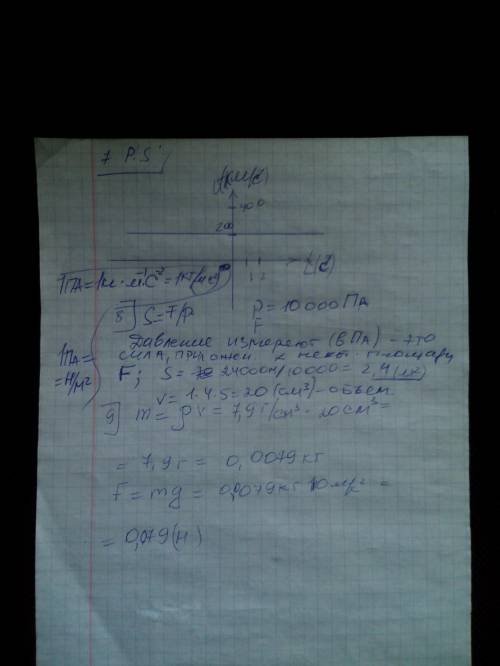 7 P.S.
v(км/с)
400
200
1 2
t(с)
1 Па = 1кг·м⁻¹с⁻² = 1кг/(м·с²)
8] S = F/p
p = 10000 Па
F
Давление измеряют (в Па) - это
1Па =
= Н/м²
сила, прилож. к некот. площади
F; S = 24000Н/10000 = 2,4
V = 1·4·5 = 20 (см³) - объём
9] m = ρV = 7,9 г/см³ · 20 см³ =
= 7,9 г = 0,0079 кг
F = mg = 0,0079 кг 10 м/с² =
= 0,079 (Н)